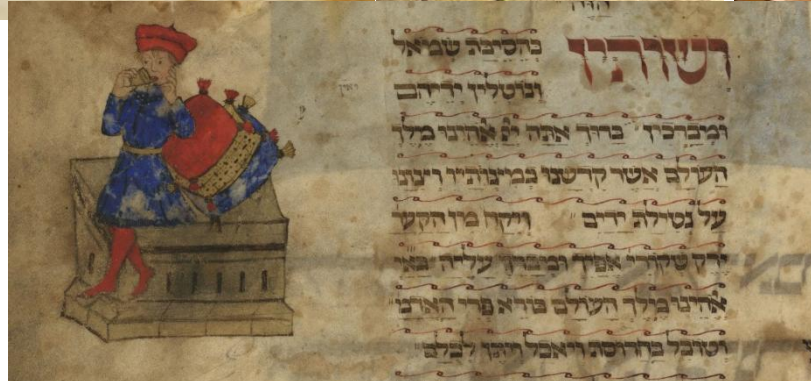 ושותין בהסיבת שמאל
ונוטלין ידיהם
ומברכין ברוך אתה יי אלהינו מלך
העולם אשר קדשנו במצותיו וצונו
על נטילת ידים ויקח מן הקער
ירק שקורין אפיך ומברך עליה
אלהינו מלך העולם בורא פרי האדמ
וטובל בחרוסת ויאכל ויתן לכלם